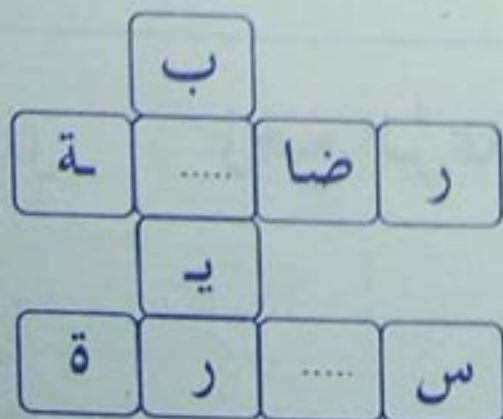 ب
ر ضا ..... ـة
يـ
س ..... ر ة